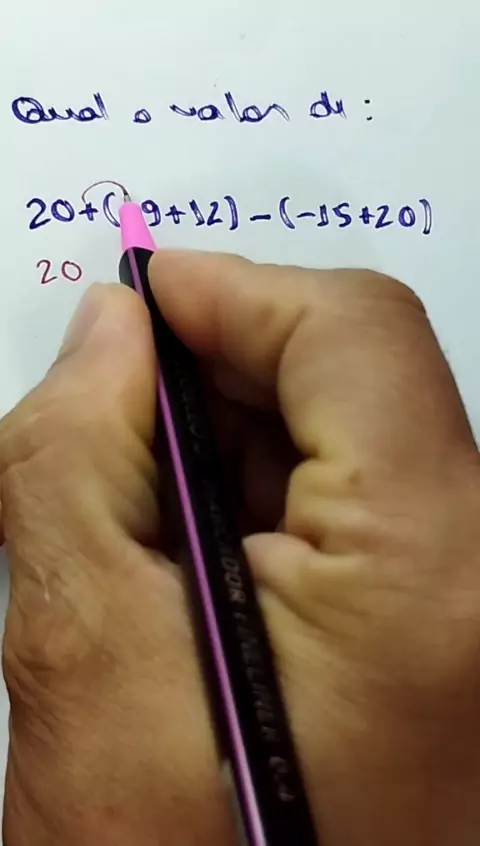 Qual o valor de:
20+( 9+12)-(-15+20)
20